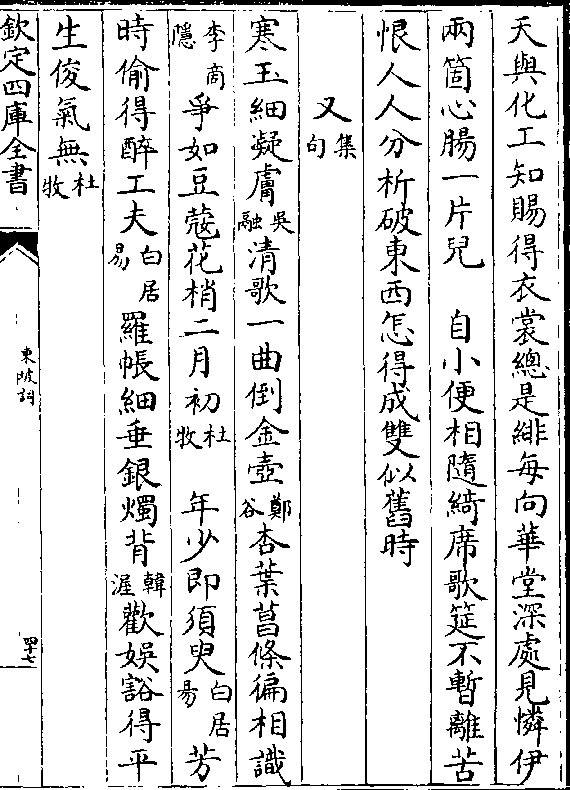 天與化工知賜得衣裳總是緋每向華堂深處見憐伊
兩箇心腸一片兒　自小便相隨綺席歌筵不暫離苦
恨人人分析破東西怎得成雙似舊時
又集句
寒玉細凝膚吳融清歌一曲倒金壺鄭谷杏葉菖條徧相識
李商隱爭如豆蔻花梢二月初杜牧　年少即須臾白居易芳
時偷得醉工夫白居易羅帳細垂銀燭背韓渥歡娛豁得平
生俊氣無杜牧
欽定四庫全書
東坡詞
四十七